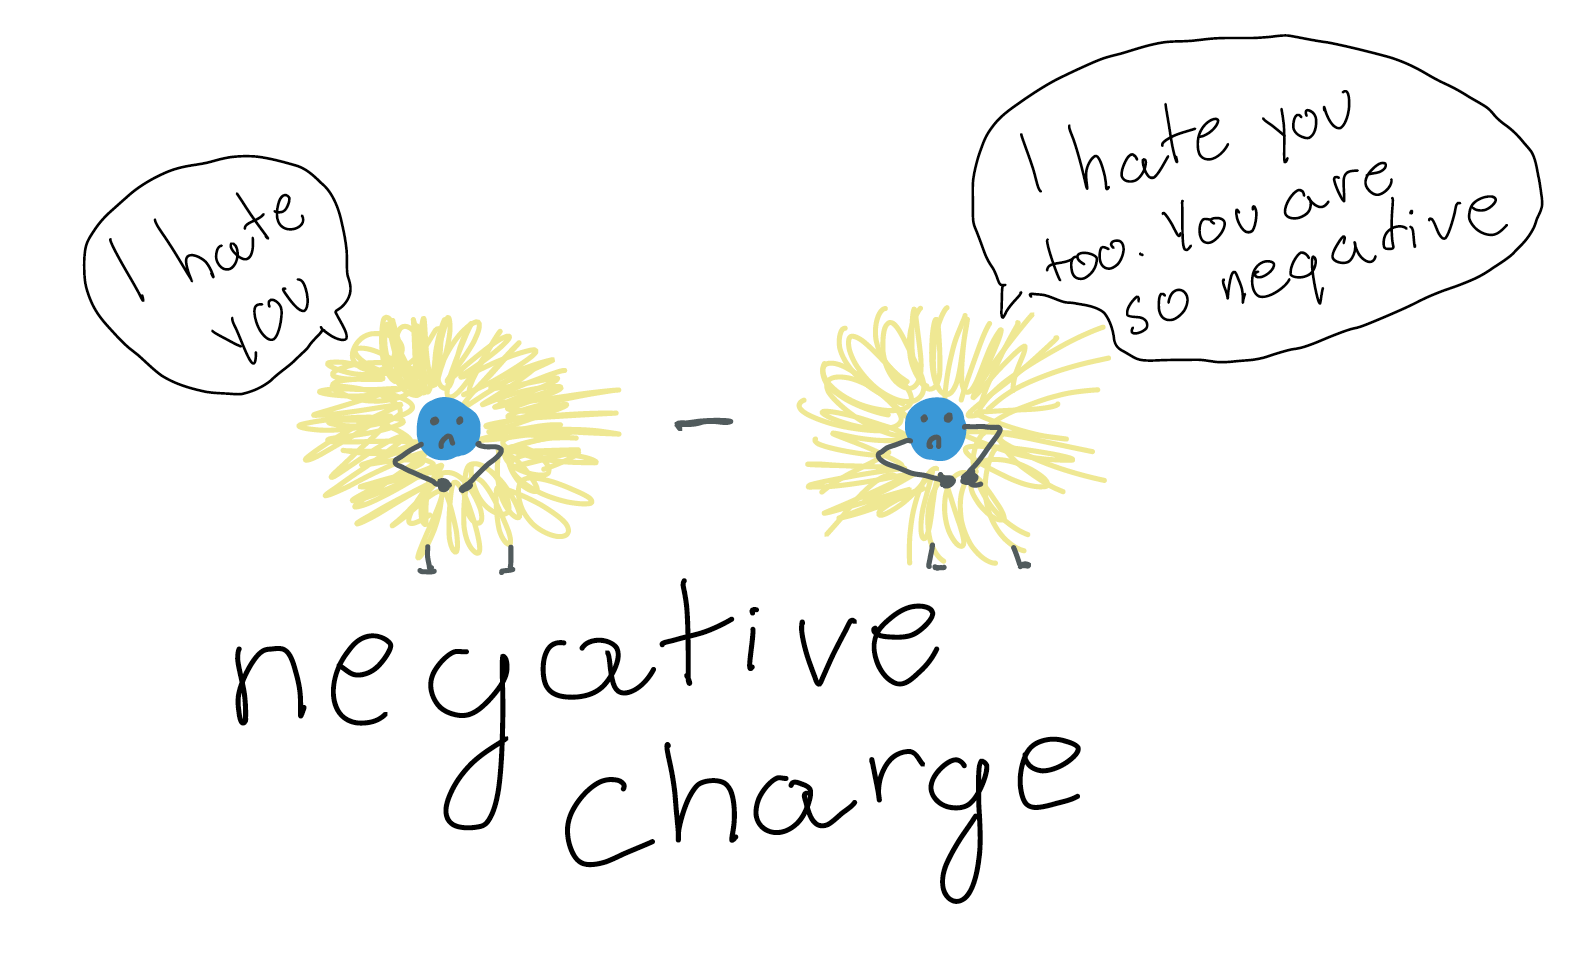 I hate
you
I hate you
too. You are
so negative
-
negative
charge